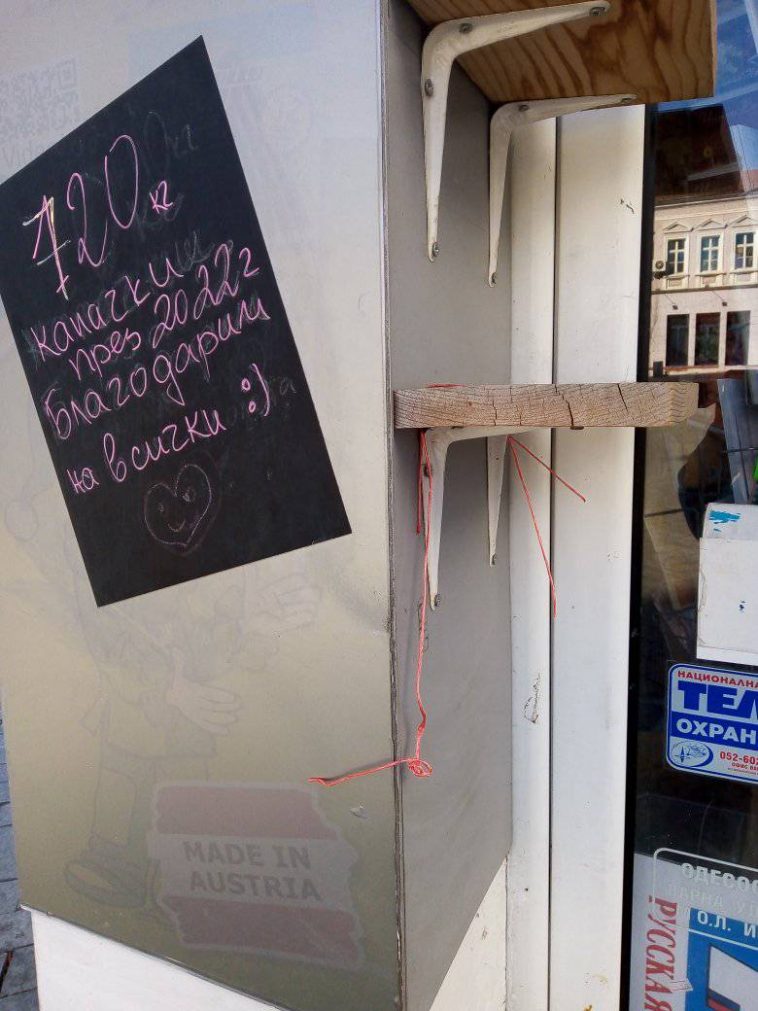 720 кг
капачки
през 2022г
Благодарим
на всички :)
MADE IN
AUSTRIA
НАЦИОНАЛНА
ТЕЛ
ОХРАН
052-602
ОДЕСОС
ВАРНА
О.Л. И
РУССКАЯ